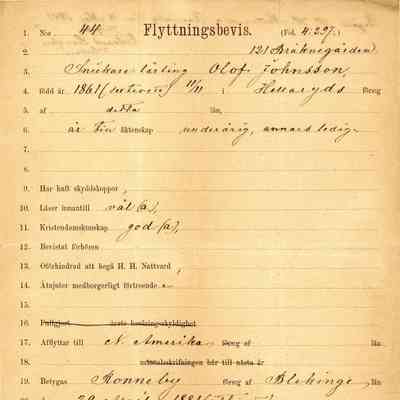 1. N:o 44. Flyttningsbevis. (Fol. 4.297.)
2. 121 Bräknegården
3. Snickare lärling Olof Johnsson,
4. född år 1861 11/11 i Hellaryds förs:g
5. af detta län,
6. är äktenskap underårig, annars ledig.
7.
8.
9. Har haft skyddskoppor,
10. Läser innantill väl (a),
11. Kristendomskunskap god (a),
12. Bevistat förhören
13. Oförhindrad att begå H. H. Nattvard,
14. Åtnjuter medborgerligt förtroende
15.
16. Fullgjort årets bevärings-skyldighet
17. Afflyttar till N. Amerika förs:g af län
18. mantalsskrifningen här till nästa år
19. Betygas Ronneby förs:g af Blekinge län